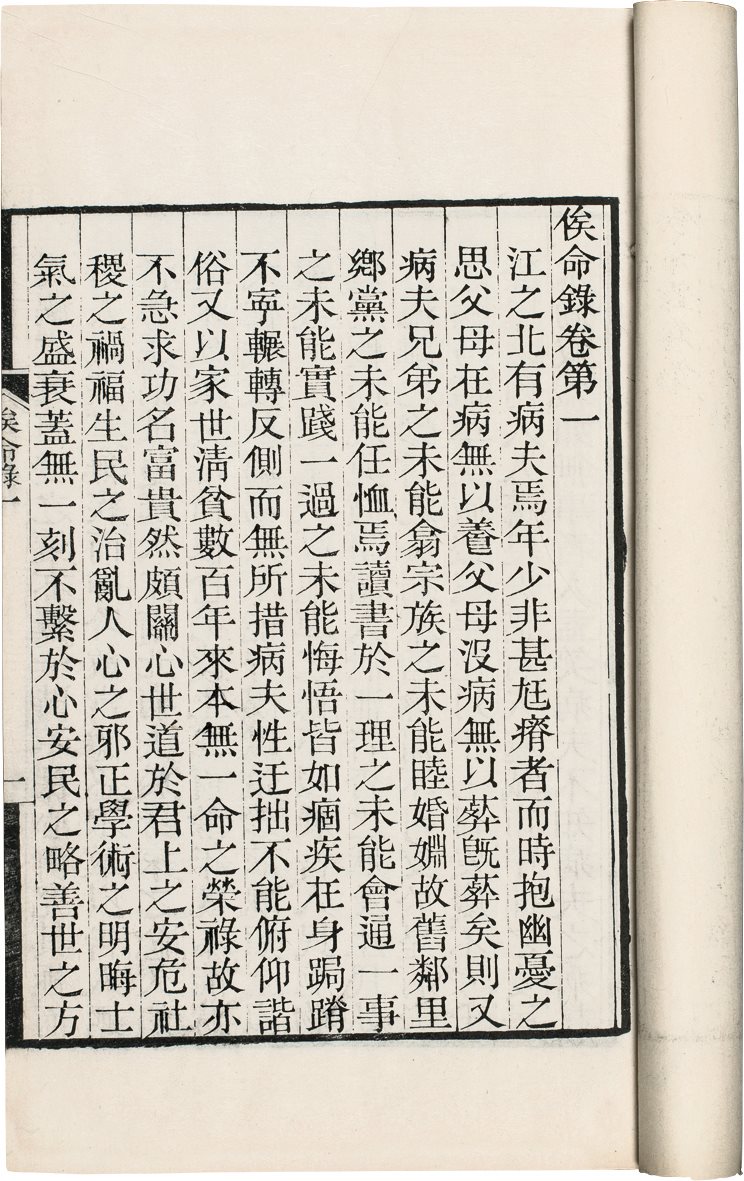 俟命錄卷第一
江之北有病夫焉年少非甚尩瘠者而時抱幽憂之
思父母在病無以養父母沒病無以葬旣葬矣則又
病夫兄弟之未能翕宗族之未能睦婚婣故舊鄰里
鄉黨之未能任恤焉讀書於一理之未能會通一事
之未能實踐一過之未能悔悟皆如痼疾在身跼蹐
不寧輾轉反側而無所措病夫性迂拙不能俯仰諧
俗又以家世淸貧數百年來本無一命之榮祿故亦
不急求功名富貴然頗關心世道於君上之安危社
稷之禍福生民之治亂人心之邪正學術之明晦士
氣之盛衰蓋無一刻不繫於心安民之略善世之方
俟命錄一
一